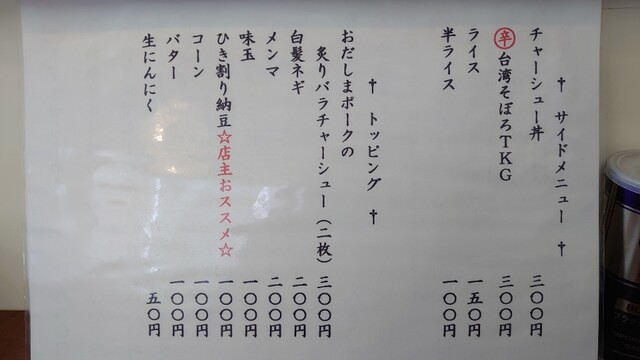 † サイドメニュー †
チャーシュー丼 三〇〇円
辛 台湾そぼろTKG 三〇〇円
ライス 一五〇円
半ライス 一〇〇円
† トッピング †
おだしまポークの
炙りバラチャーシュー(二枚) 三〇〇円
白髪ネギ 二〇〇円
メンマ 二〇〇円
味玉 一〇〇円
ひき割り納豆☆店主おススメ☆ 一〇〇円
コーン 一〇〇円
バター 一〇〇円
生にんにく 五〇円